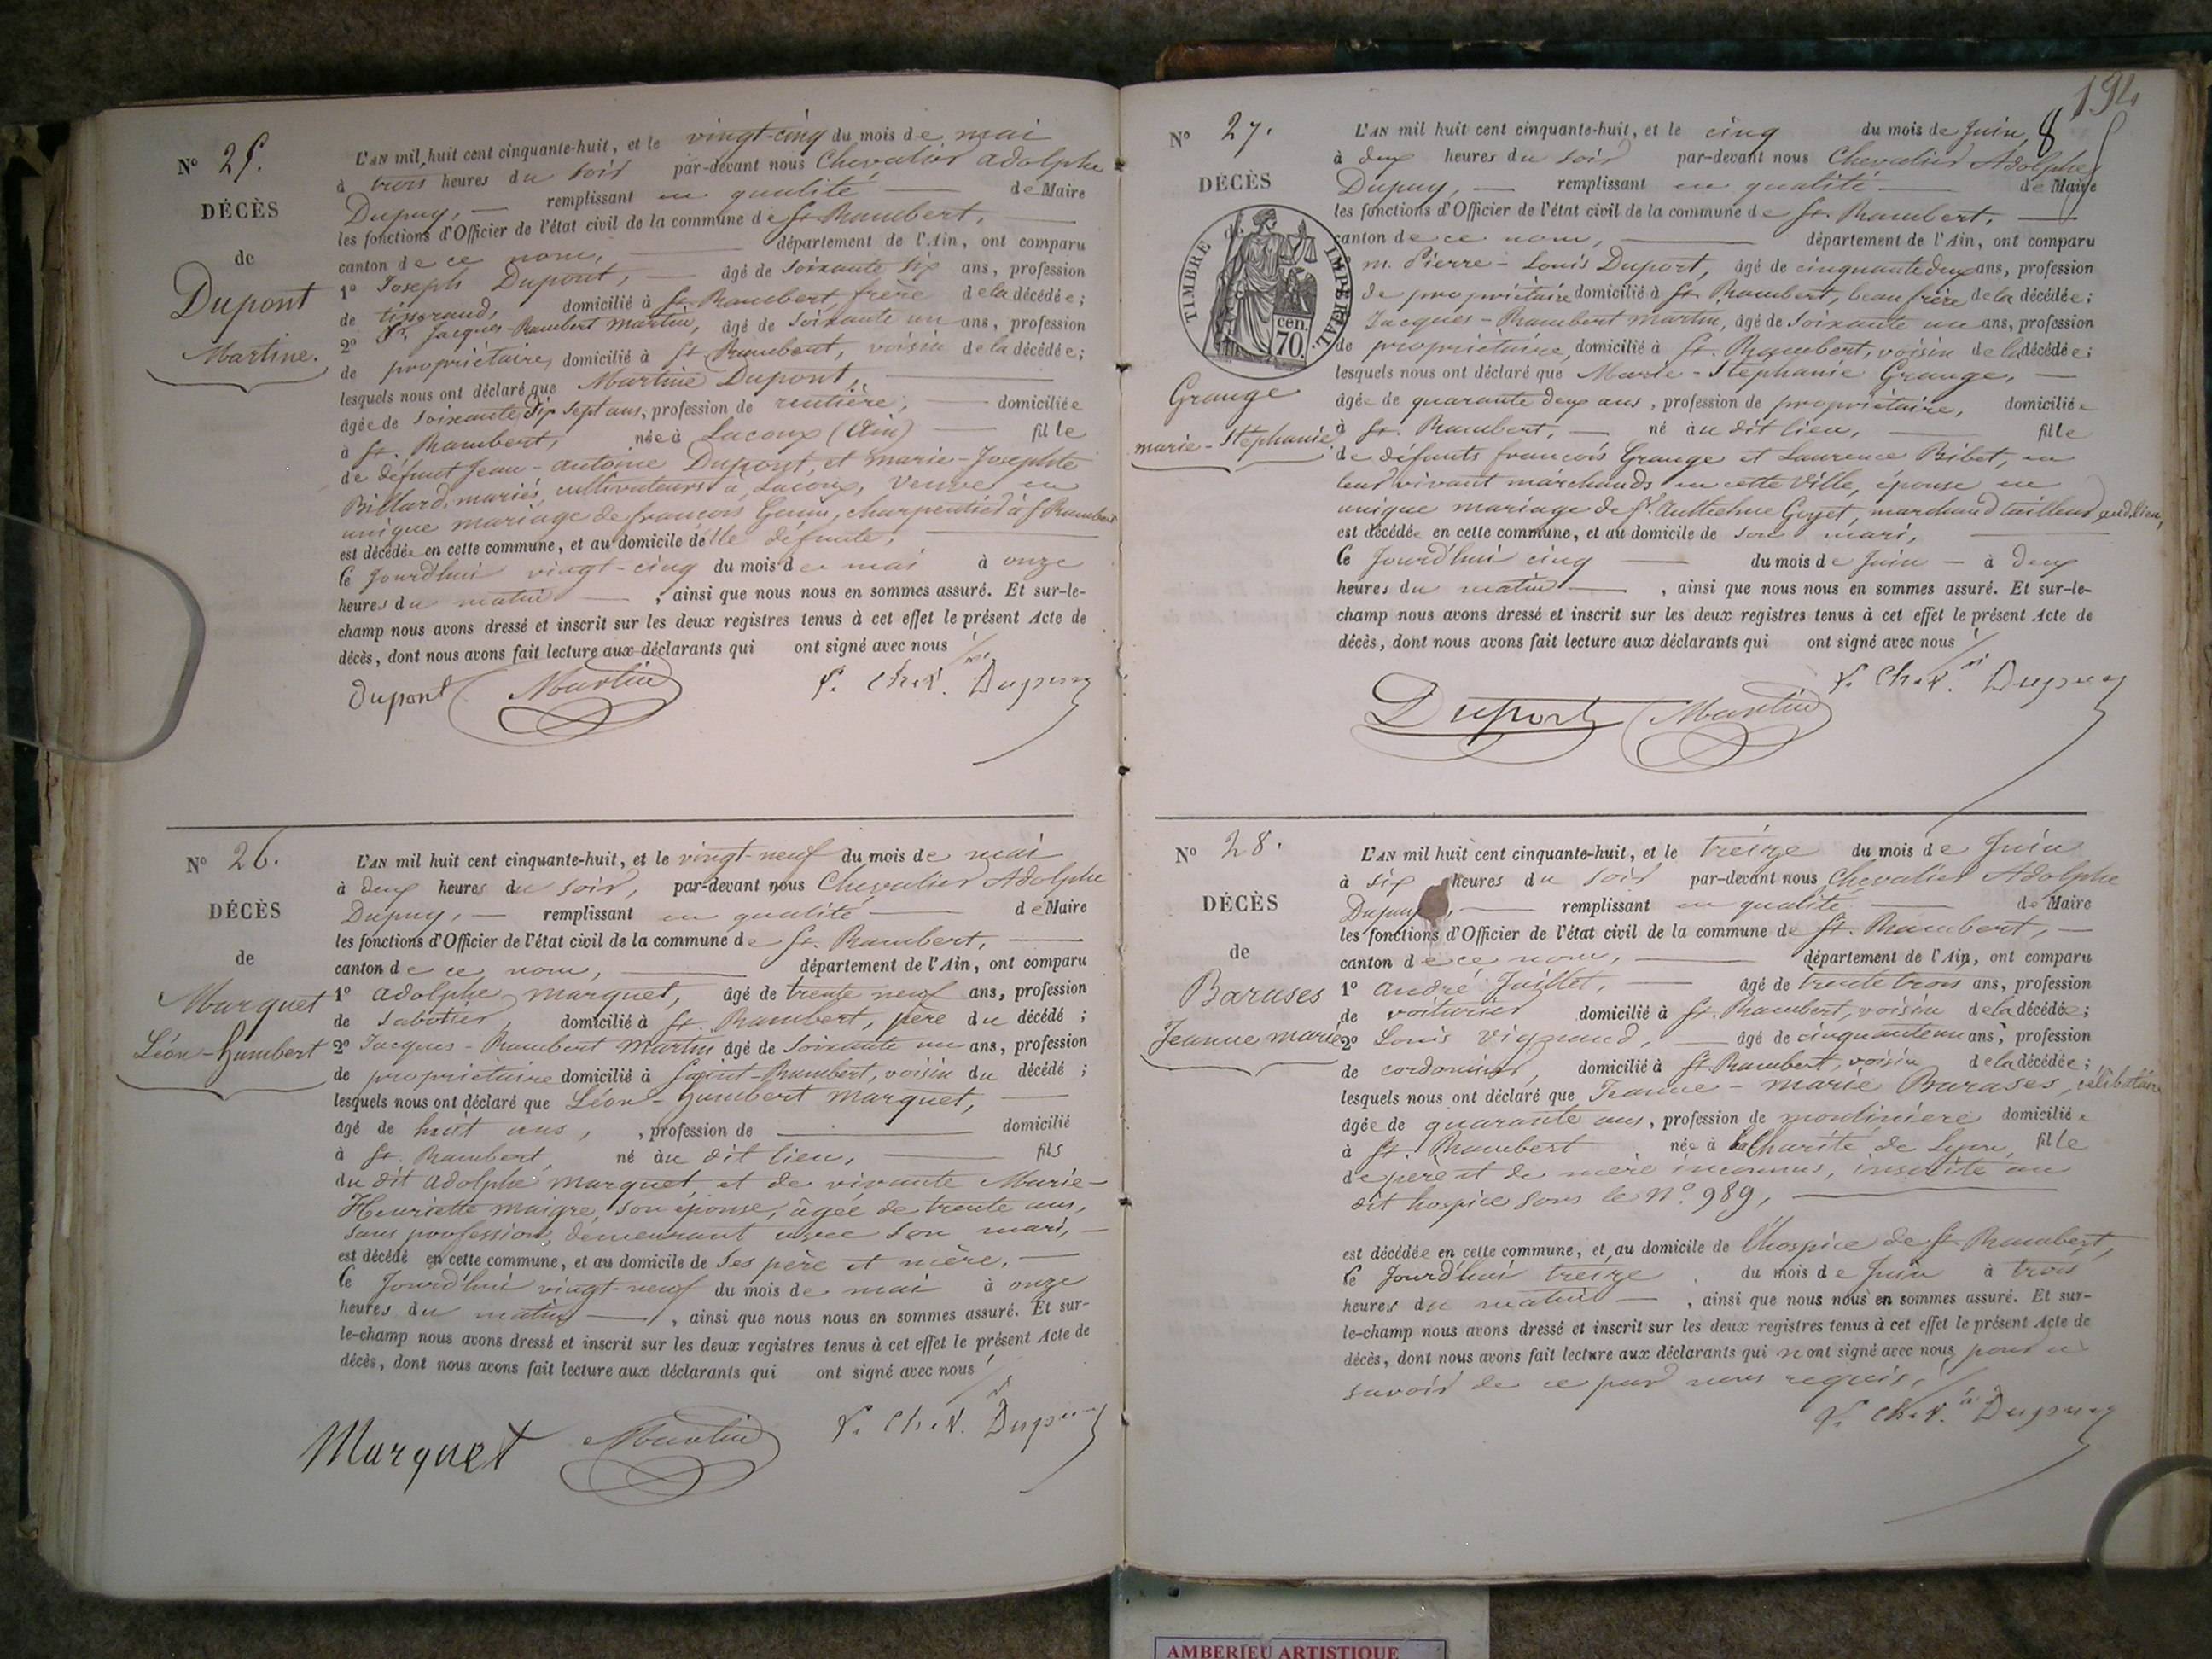 N° 25.
DÉCÈS
de
Dupont
Martine.
L'AN mil huit cent cinquante-huit, et le vingt-cinq du mois de mai
à trois heures du soir par-devant nous Chevalier Adolphe
Dupuy, — remplissant en qualité — de Maire
les fonctions d'Officier de l'état civil de la commune de St. Rambert, —
canton de ce nom, — département de l'Ain, ont comparu
1° Joseph Dupont, — âgé de soixante six ans, profession
de tisserand, domicilié à St. Rambert, frère de la décédée;
2° Sr. Jacques-Rambert Martin, âgé de soixante un ans, profession
de propriétaire, domicilié à St Rambert, voisin de la décédée;
lesquels nous ont déclaré que Martine Dupont, —
âgée de soixante dix sept ans, profession de rentière, — domiciliée
à St. Rambert, née à Lacoux (Ain) — fille
de défunt Jean-antoine Dupont, et Marie-Josephte
Billard, mariés, cultivateurs à Lacoux, Veuve en
unique mariage de françois Genin, charpentier à St Rambert
est décédée en cette commune, et au domicile de elle défunte, —
le Jourd'hui vingt-cinq du mois de mai à onze
heures du matin — , ainsi que nous nous en sommes assuré. Et sur-le-
champ nous avons dressé et inscrit sur les deux registres tenus à cet effet le présent Acte de
décès, dont nous avons fait lecture aux déclarants qui ont signé avec nous
Dupont Martin Dupuy
N° 26.
DÉCÈS
de
Marquet
Léon-humbert
L'AN mil huit cent cinquante-huit, et le vingt-neuf du mois de mai
à deux heures du soir, par-devant nous Chevalier Adolphe
Dupuy, — remplissant en qualité — de Maire
les fonctions d'Officier de l'état civil de la commune de St. Rambert, —
canton de ce nom, — département de l'Ain, ont comparu
1° Adolphe marquet, âgé de trente neuf ans, profession
de Sabotier, domicilié à St. Rambert, père du décédé ;
2° Jacques-Rambert Martin âgé de soixante un ans, profession
de propriétaire domicilié à Saint-Rambert, voisin du décédé ;
lesquels nous ont déclaré que Léon-humbert marquet, —
âgé de huit ans, , profession de — domicilié
à St. Rambert, né au dit lieu, — fils
du dit Adolphe marquet, et de vivante Marie-
Henriette maigre, son épouse, âgée de trente ans,
sans profession, demeurant avec son mari, —
est décédé en cette commune, et au domicile de ses père et mère. —
le Jourd'hui vingt-neuf du mois de mai à onze
heures du matin — , ainsi que nous nous en sommes assuré. Et sur-
le-champ nous avons dressé et inscrit sur les deux registres tenus à cet effet le présent Acte de
décès, dont nous avons fait lecture aux déclarants qui ont signé avec nous
Marquet Martin Dupuy
194
8
N° 27.
DÉCÈS
TIMBRE IMPÉRIAL
70 cen.
Grange
marie-Stéphanie
L'AN mil huit cent cinquante-huit, et le cinq du mois de Juin,
à deux heures du soir par-devant nous Chevalier Adolphe
Dupuy, — remplissant en qualité — de Maire
les fonctions d'Officier de l'état civil de la commune de St. Rambert, —
canton de ce nom, — département de l'Ain, ont comparu
m. Pierre-Louis Duport, âgé de cinquante deux ans, profession
de propriétaire domicilié à St. Rambert, beau frère de la décédée;
Jacques-Rambert Martin, âgé de soixante un ans, profession
de propriétaire, domicilié à St. Rambert, voisin de la décédée;
lesquels nous ont déclaré que Marie-Stéphanie Grange, —
âgée de quarante deux ans, profession de propriétaire, domiciliée
à St. Rambert, — né au dit lieu, — fille
de défunts françois Grange et Laurence Bibet, en
leur vivant marchands en cette ville, épouse en
unique mariage de Sr. Anthelme Goyet, marchand tailleur
est décédée en cette commune, et au domicile de son mari, —
le Jourd'hui cinq — du mois de Juin — à deux
heures du matin — , ainsi que nous nous en sommes assuré. Et sur-le-
champ nous avons dressé et inscrit sur les deux registres tenus à cet effet le présent Acte de
décès, dont nous avons fait lecture aux déclarants qui ont signé avec nous
Duport Martin Dupuy
N° 28.
DÉCÈS
de
Baruses
Jeanne marie
L'AN mil huit cent cinquante-huit, et le treize du mois de Juin
à six heures du soir par-devant nous Chevalier Adolphe
Dupuy, — remplissant en qualité — de Maire
les fonctions d'Officier de l'état civil de la commune de St. Rambert, —
canton de ce nom, — département de l'Ain, ont comparu
1° André Juillet, — âgé de trente trois ans, profession
de voiturier domicilié à St. Rambert, voisin de la décédée;
2° Louis Vignand, — âgé de cinquante un ans, profession
de cordonnier, domicilié à St Rambert, voisin de la décédée;
lesquels nous ont déclaré que Jeanne-marie Baruses, célibataire
âgée de quarante ans, profession de moulinière domiciliée
à St. Rambert née à la Charité de Lyon, fille
de père et de mère inconnus, inscrite au
dit hospice sous le N° 989, —
est décédée en cette commune, et au domicile de l'hospice de St Rambert,
le Jourd'hui treize du mois de Juin à trois
heures du matin — , ainsi que nous nous en sommes assuré. Et sur-
le-champ nous avons dressé et inscrit sur les deux registres tenus à cet effet le présent Acte de
décès, dont nous avons fait lecture aux déclarants qui n'ont signé avec nous, pour ne
savoir de ce par nous requis,
Dupuy
AMBERIEU ARTISTIQUE